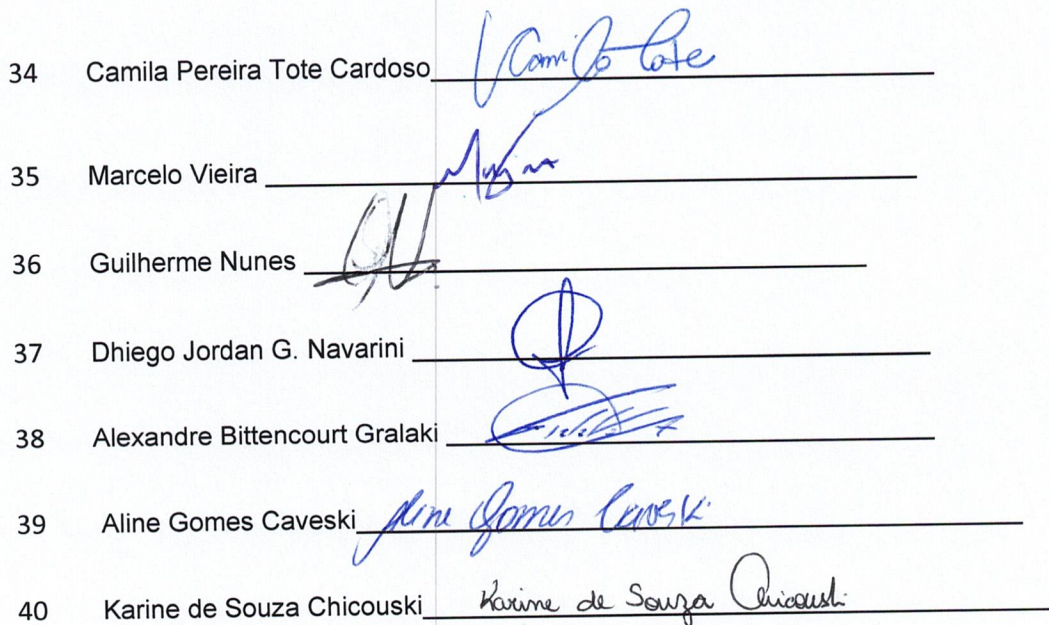 34 Camila Pereira Tote Cardoso Camila Tote
35 Marcelo Vieira
36 Guilherme Nunes
37 Dhiego Jordan G. Navarini
38 Alexandre Bittencourt Gralaki
39 Aline Gomes Caveski Aline Gomes Caveski
40 Karine de Souza Chicouski Karine de Souza Chicouski